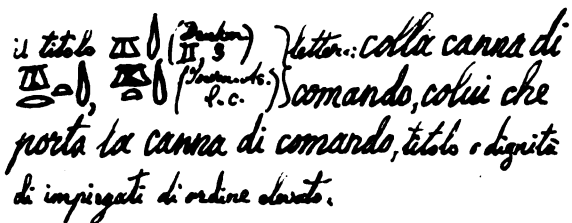 il titolo (II 9) letter.: colla canna di
l.c.) comando, colui che
porta la canna di comando, titolo e dignità
di impiegati di ordine elevato.